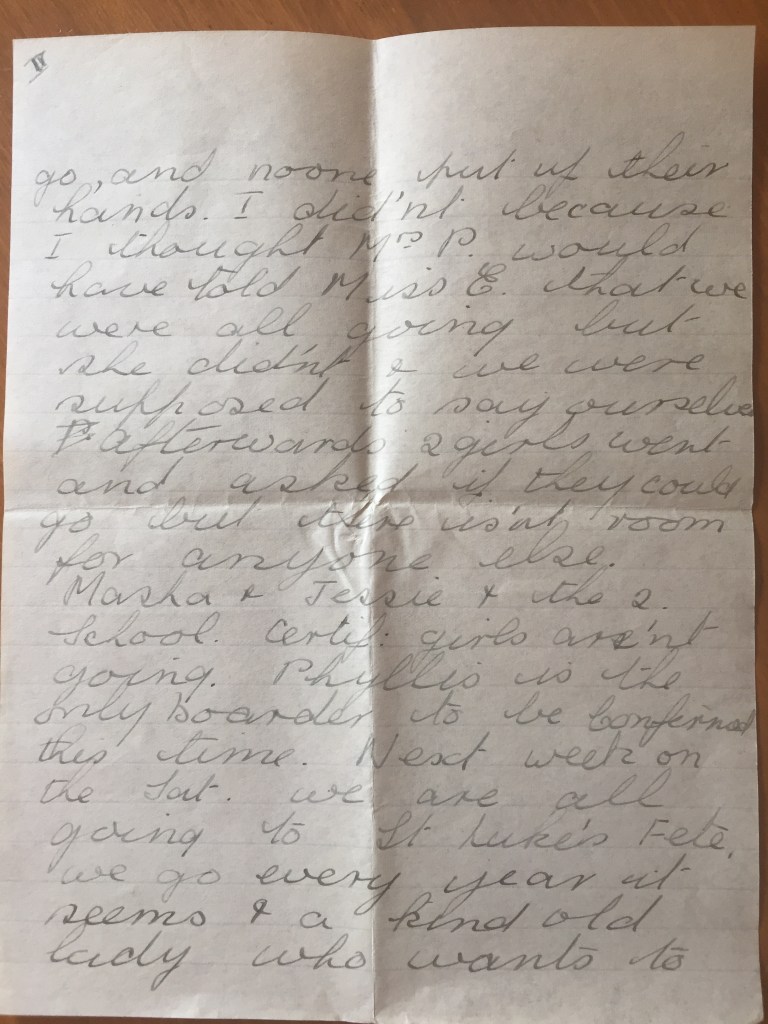 II
go, and noone put up their
hands. I did'nt because
I thought Mrs P. would
have told Miss E. that we
were all going but
she did'nt & we were
supposed to say ourselves
afterwards 2 girls went
and asked if they could
go but there is'nt room
for anyone else.
Masha & Jessie & the 2.
School. Certif: girls are'nt
going. Phyllis is the
only boarder to be Confirmed
this time. Next week on
the Sat. we are all
going to St Luke's Fete,
we go every year it
seems & a kind old
lady who wants to